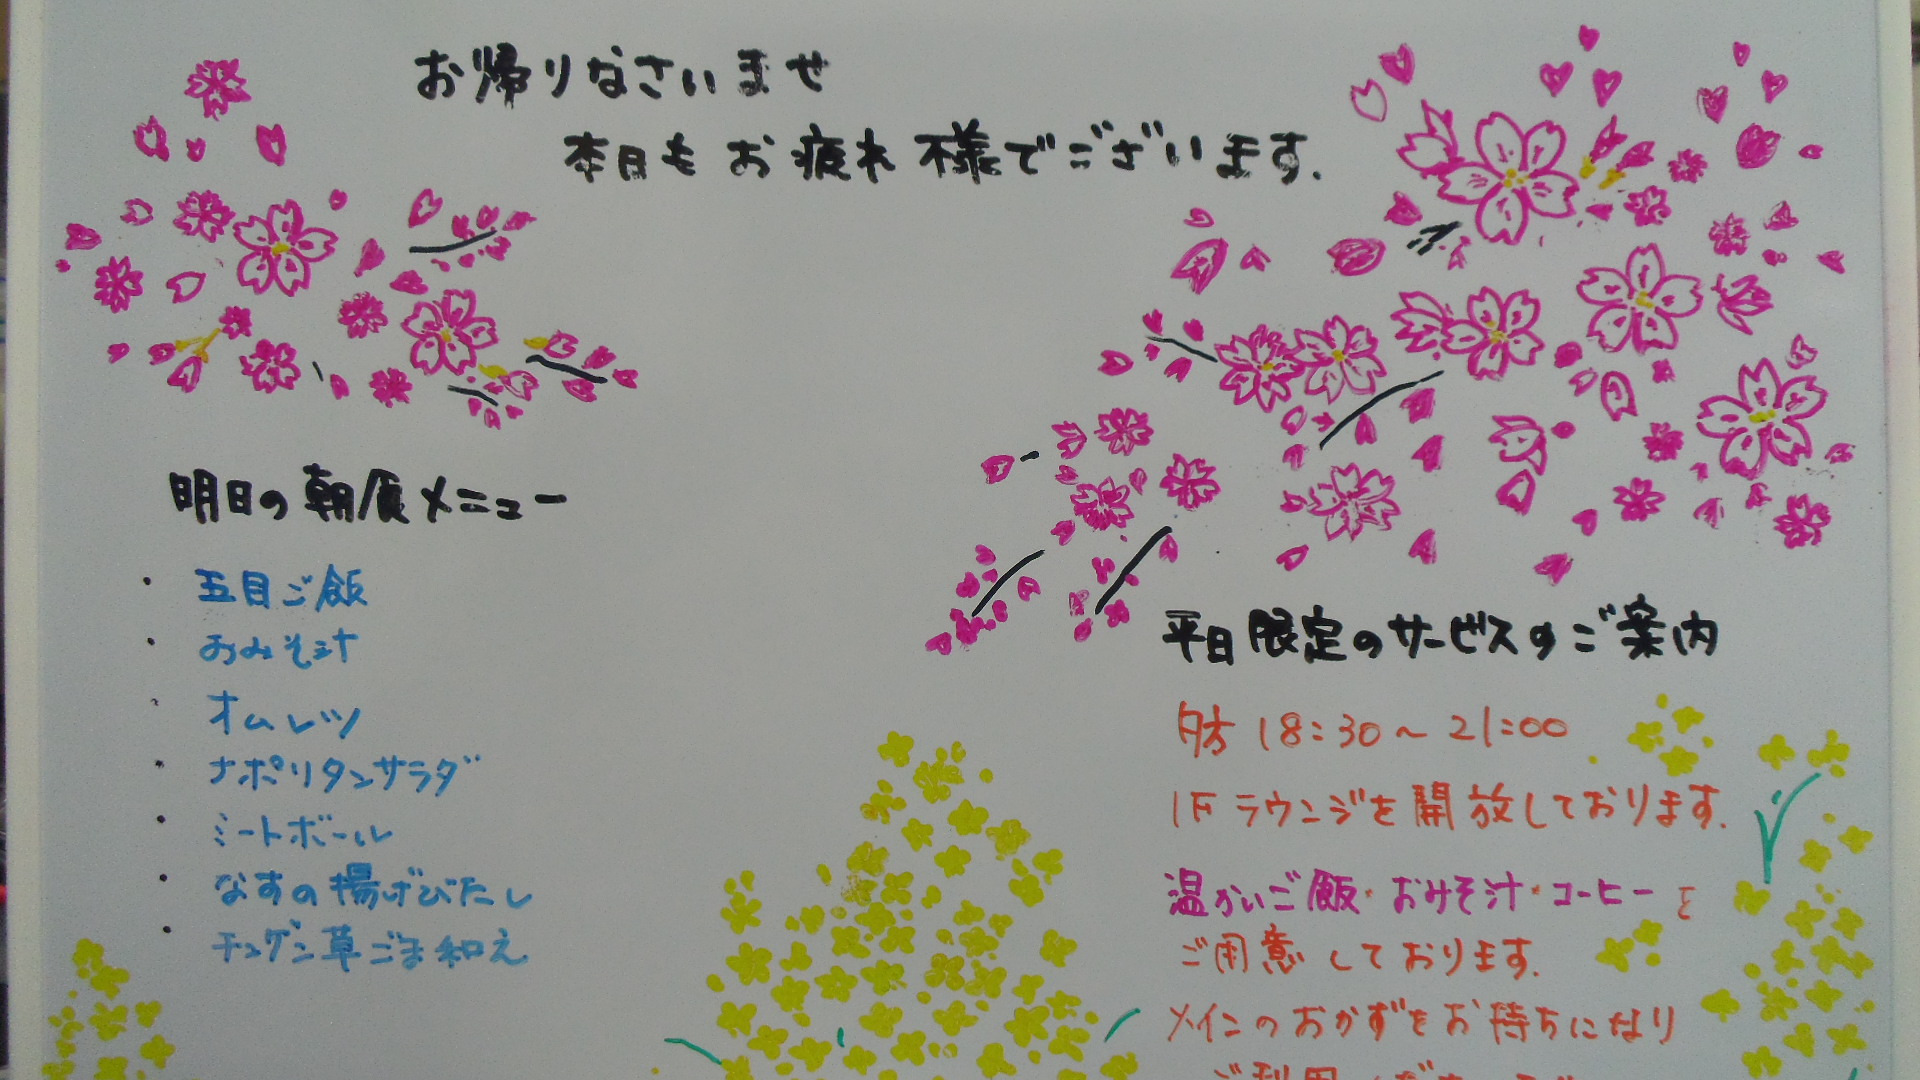 お帰りなさいませ
本日もお疲れ様でございます.
明日の朝食メニュー
・五目ご飯
・おみそ汁
・オムレツ
・ナポリタンサラダ
・ミートボール
・なすの揚げびたし
・チンゲン草ごま和え
平日限定のサービスのご案内
夕方 18:30～21:00
1Fラウンジを開放しております.
温かいご飯・おみそ汁・コーヒーを
ご用意しております.
メインのおかずをお持ちになり